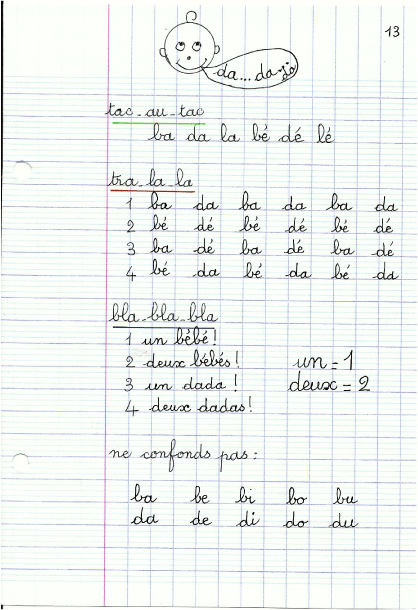 13
da... da... da
tac-au-tac
ba da la bé dé lé
tra-la-la
1 ba da ba da ba da
2 bé dé bé dé bé dé
3 ba dé ba dé ba dé
4 bé da bé da bé da
bla-bla-bla
1 un bébé!
2 deux bébés! un = 1
3 un dada! deux = 2
4 deux dadas!
ne confonds pas :
ba be bi bo bu
da de di do du